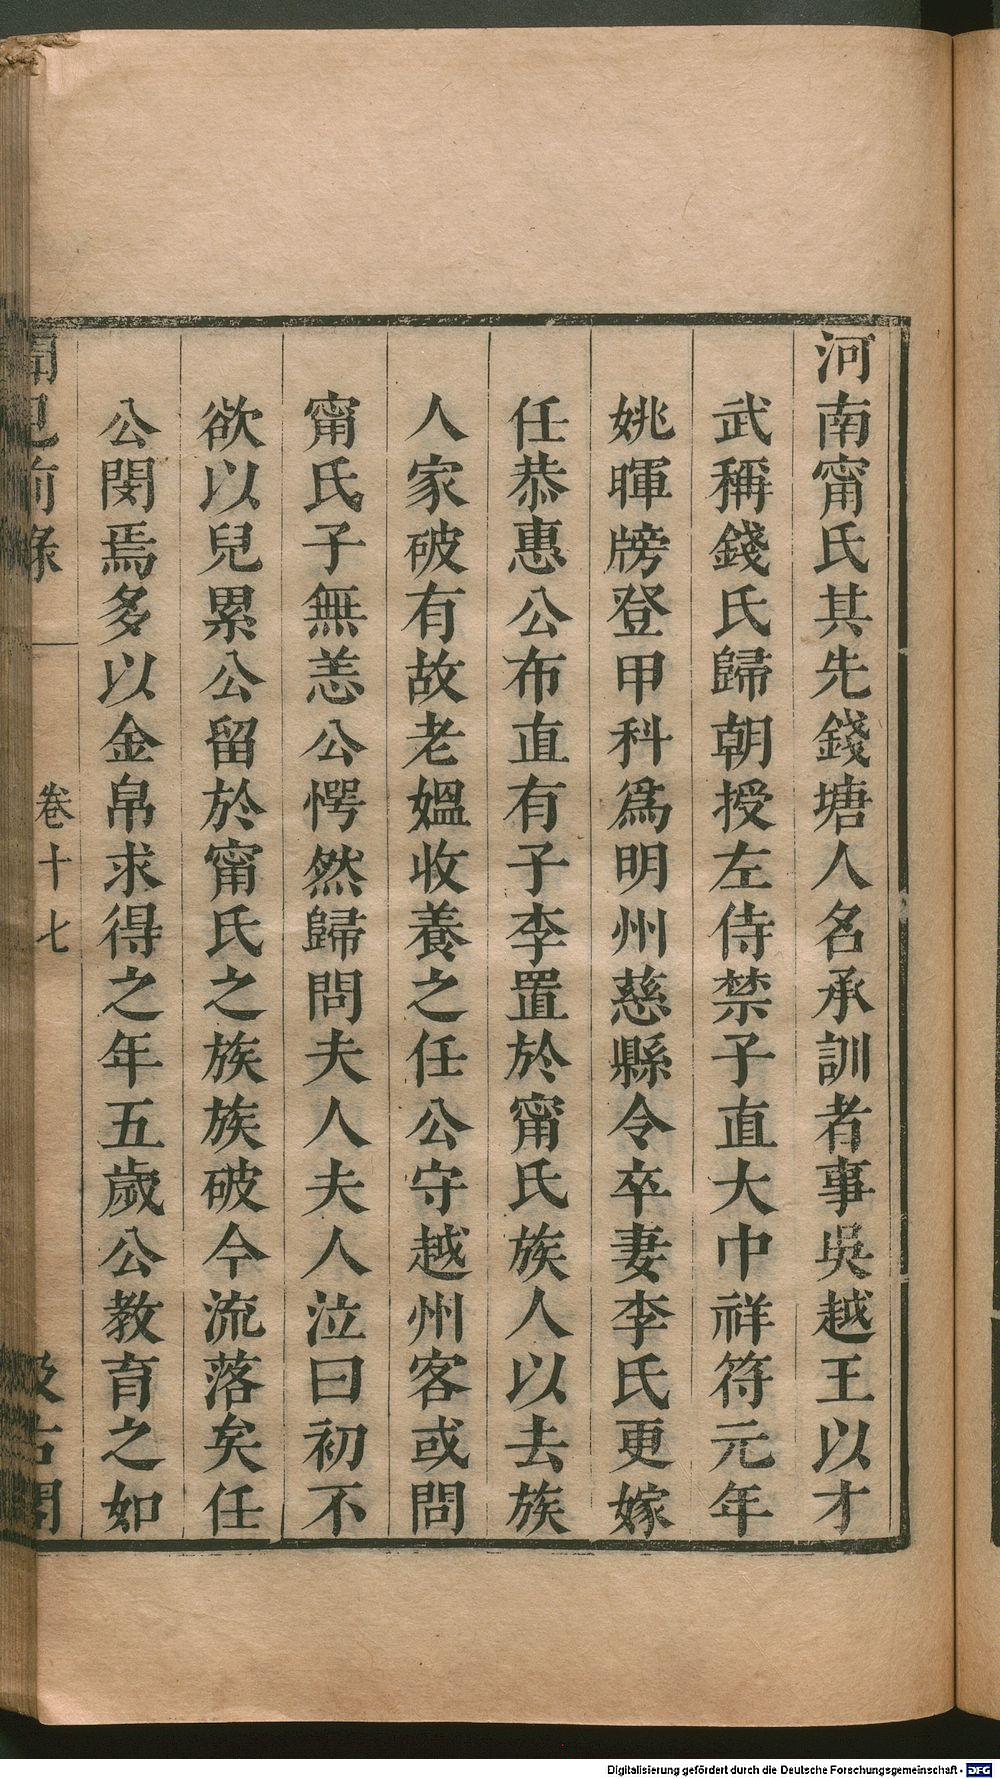 河南甯氏其先錢塘人名承訓者事吳越王以才
武稱錢氏歸朝授左侍禁子直大中祥符元年
姚暉牓登甲科爲明州慈縣令卒妻李氏更嫁
任恭惠公布直有子李置於甯氏族人以去族
人家破有故老媼收養之任公守越州客或問
甯氏子無恙公愕然歸問夫人夫人泣曰初不
欲以兒累公留於甯氏之族族破今流落矣任
公閔焉多以金帛求得之年五歲公教育之如
聞見前錄
卷十七
汲古閣
Digitalisierung gefördert durch die Deutsche Forschungsgemeinschaft - DFG